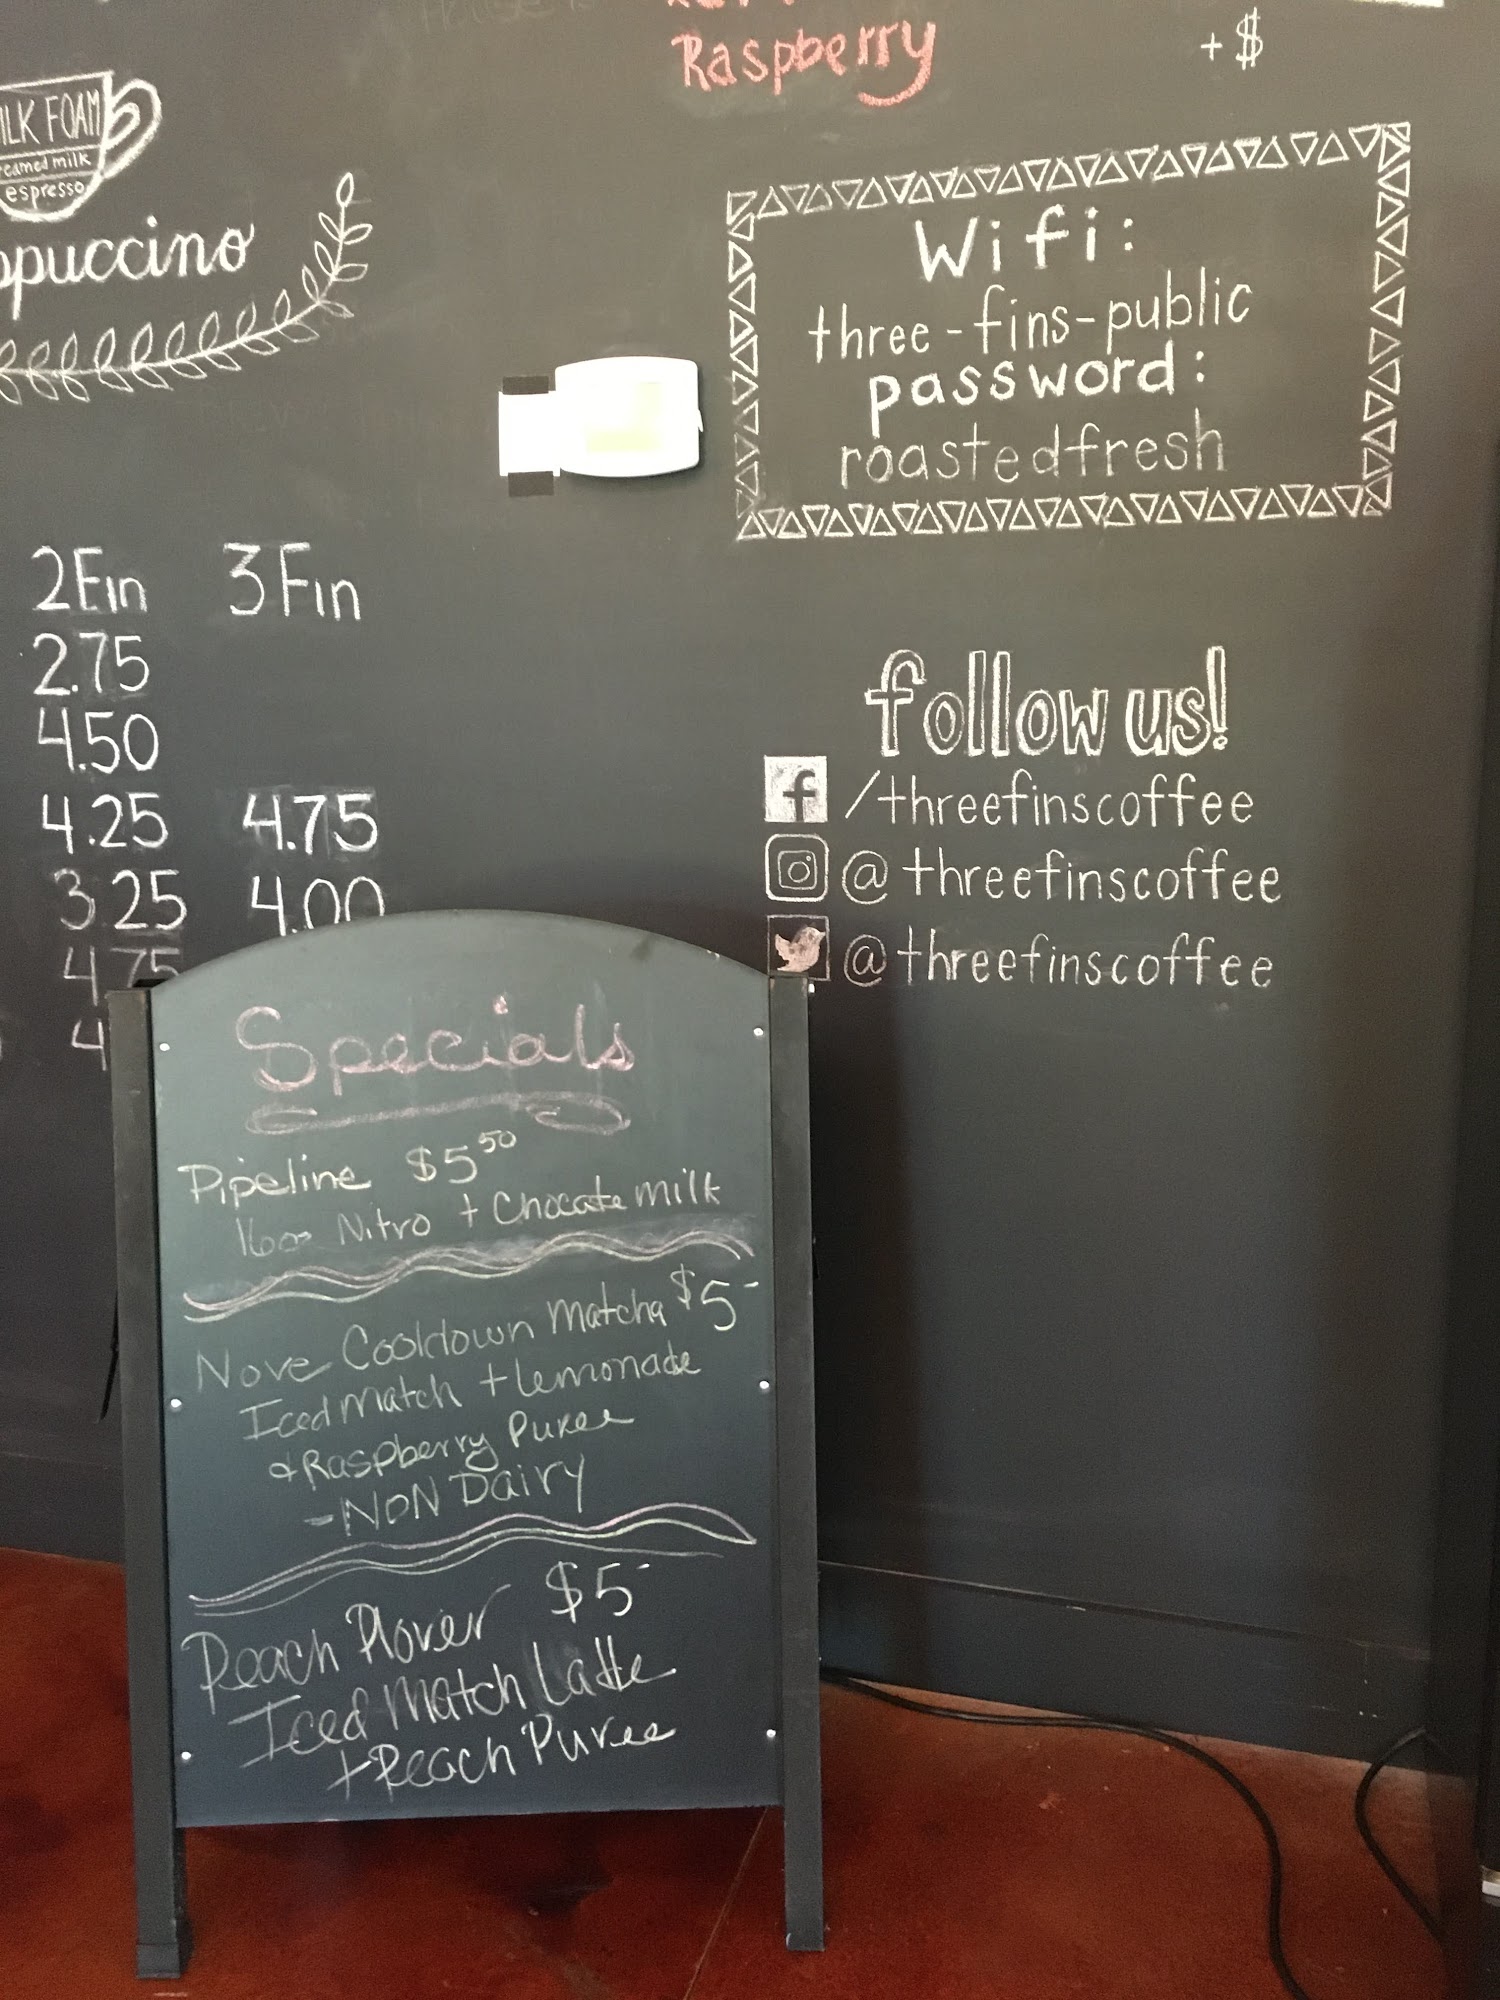 Raspberry
+$
MILK FOAM
steamed milk
espresso
ppuccino
Wifi:
three-fins-public
password:
roastedfresh
2Fin 3Fin
2.75
4.50
4.25 4.75
3.25 4.00
4.75
4
follow us!
f /threefinscoffee
@threefinscoffee
@threefinscoffee
Specials
Pipeline $5.50
16oz Nitro + Chocate milk
Nove Cooldown Matcha $5-
Iced Match + lemonade
& Raspberry Puree
- NON Dairy
Peach Plover $5-
Iced Match Latte
+ Peach Puree